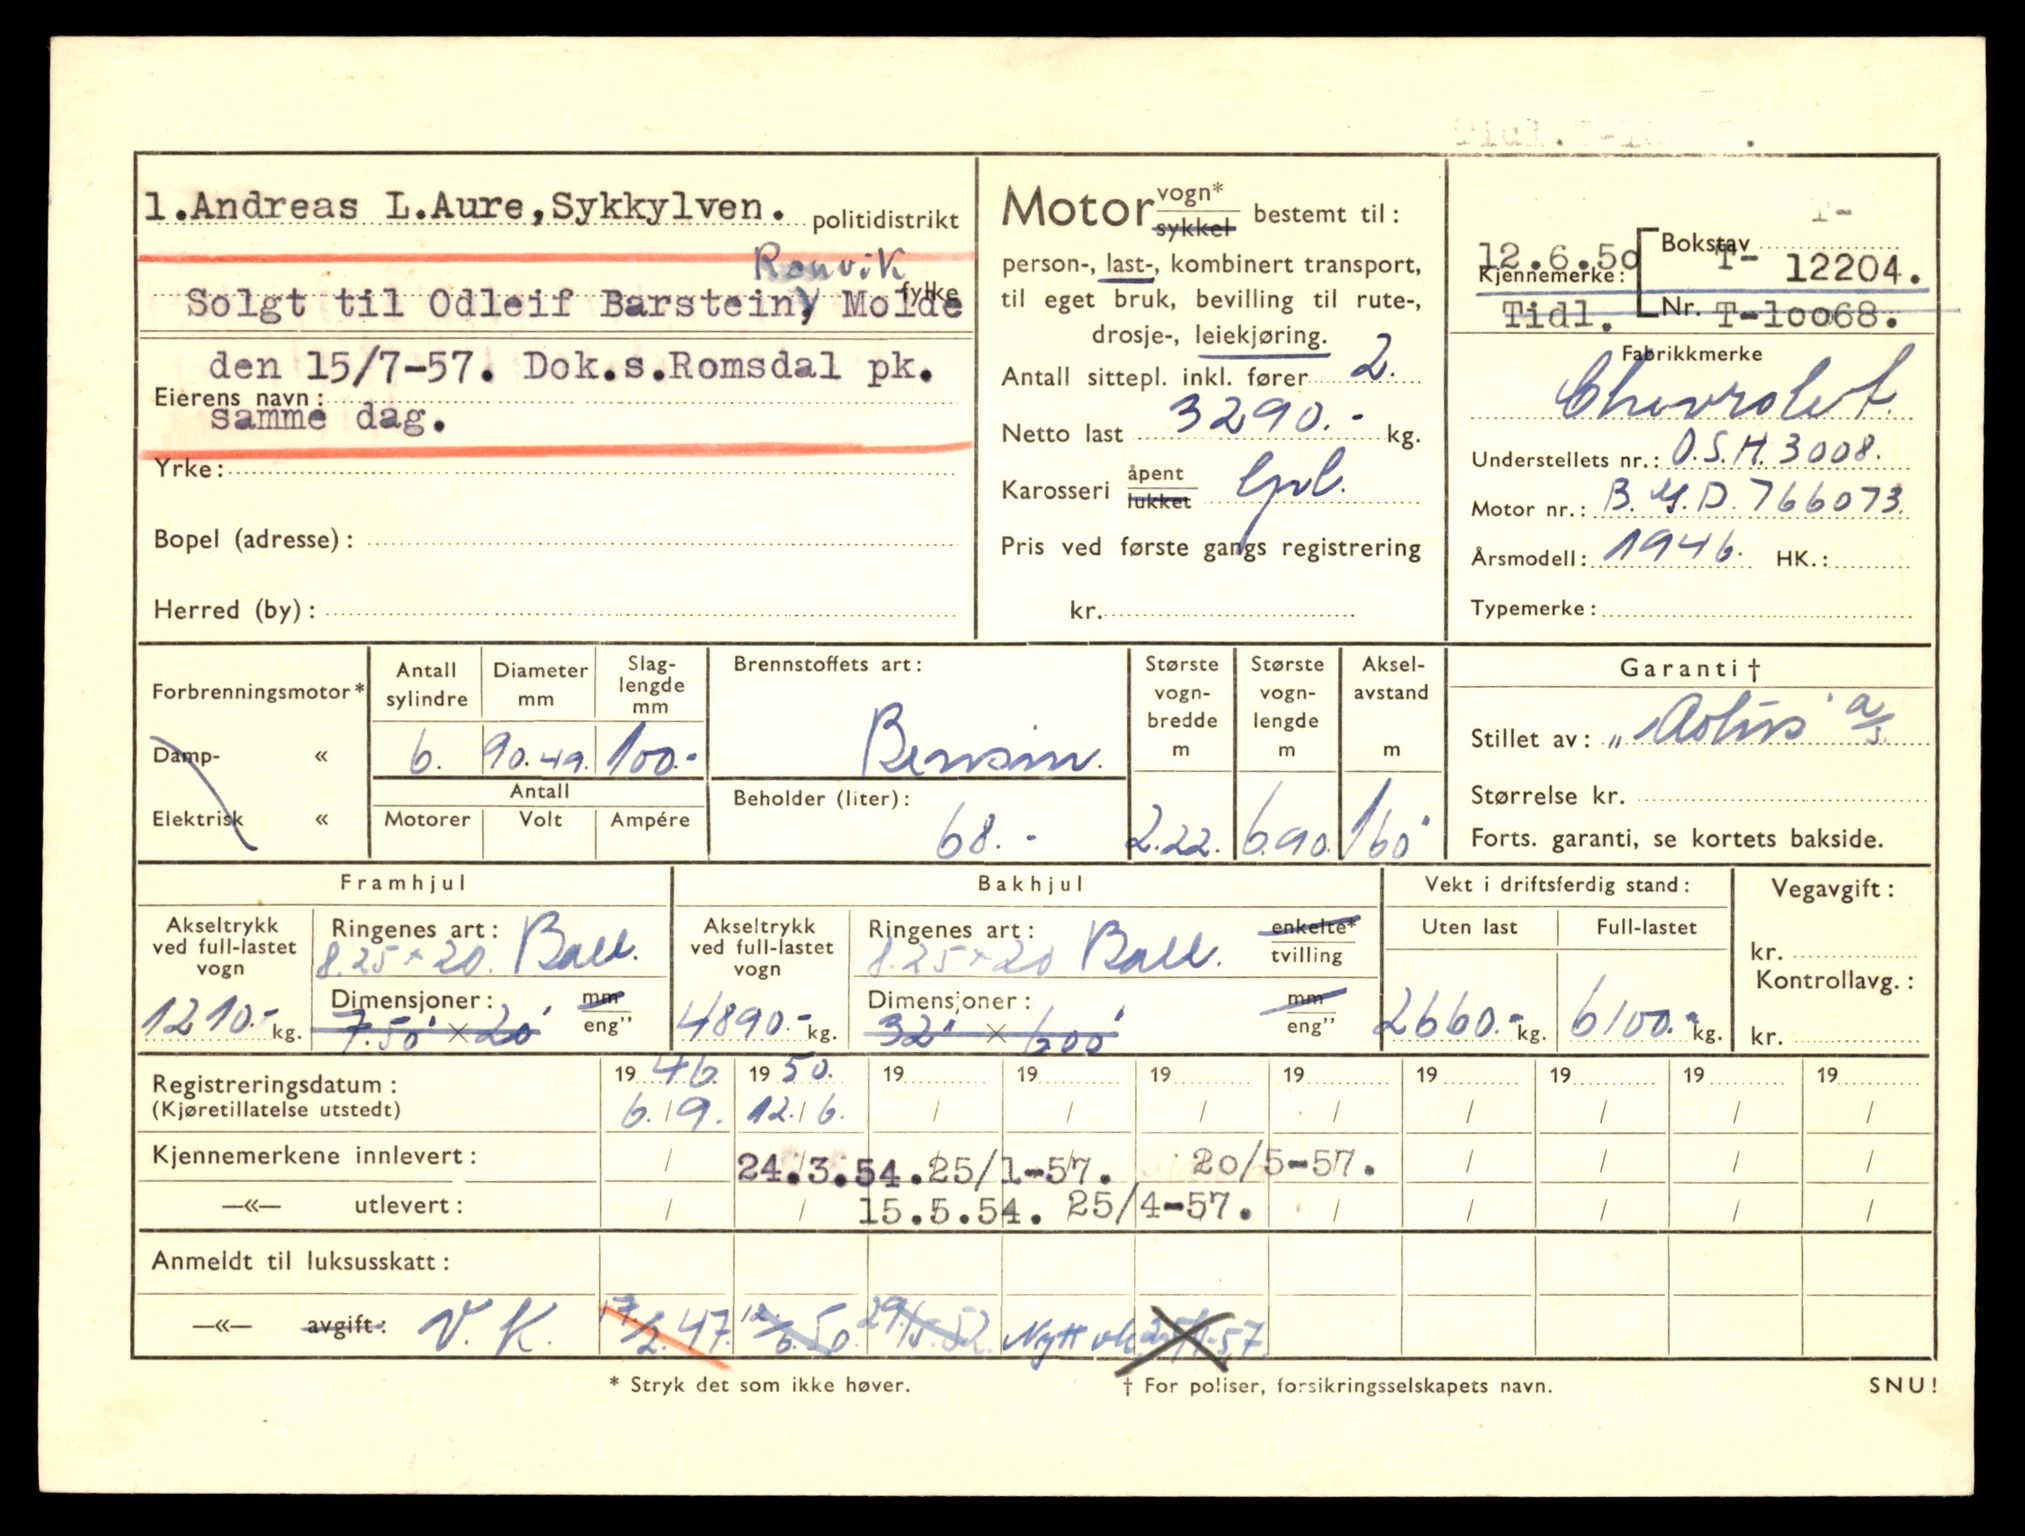 1. Andreas L. Aure, Sykkylven. politidistrikt
Rauvik
Solgt til Odleif Barstein, Molde fylke
den 15/7-57. Dok.s.Romsdal pk.
Eierens navn:
samme dag.
Yrke:
Bopel (adresse):
Herred (by):
Motor vogn* sykkel bestemt til:
person-, last-, kombinert transport,
til eget bruk, bevilling til rute-,
drosje-, leiekjøring.
Antall sittepl. inkl. fører 2.
Netto last 3290.- kg.
Karosseri åpent lukket
Pris ved første gangs registrering
kr.
T-
12.6.50 Bokstav T- 12204.
Kjennemerke:
Tidl. Nr. T-10068.
Fabrikkmerke
Chevrolet.
Understellets nr.: O.S.H. 3008.
Motor nr.: B.G.D. 766073.
Årsmodell: 1946. HK.:
Typemerke:
Forbrenningsmotor*
Damp- «
Elektrisk «
Antall sylindre
6.
Diameter mm
90.49.
Slag-lengde mm
100.-
Antall
Motorer Volt Ampére
Brennstoffets art:
Bensin.
Beholder (liter):
68.-
Største vogn-bredde m
2.22.
Største vogn-lengde m
6.90.
Aksel-avstand m
160
Garanti †
Stillet av: a/s.
Størrelse kr.
Forts. garanti, se kortets bakside.
Framhjul
Akseltrykk ved full-lastet vogn
1210.- kg.
Ringenes art: Ball.
8.25 × 20.
Dimensjoner: mm eng"
7.50 × 20
Bakhjul
Akseltrykk ved full-lastet vogn
4890.- kg.
Ringenes art: Ball. enkelte* tvilling
8.25 × 20
Dimensjoner: mm eng"
32 × 600
Vekt i driftsferdig stand:
Uten last Full-lastet
2660.- kg. 6100.- kg.
Vegavgift:
kr.
Kontrollavg.:
kr.
Registreringsdatum: 19 46. 19 50. 19 19 19 19 19 19 19 19
(Kjøretillatelse utstedt) 6./9. 12./6. / / / / / / / /
Kjennemerkene innlevert: / 24.3.54. 25/1-57. 20/5-57. / / / /
—«— utlevert: / / 15.5.54. 25/4-57. / / / / /
Anmeldt til luksusskatt:
—«— avgift: V.K. 17/2.47. 12/6.50. 29/5.52. Nytt vk 25/4-57.
* Stryk det som ikke høver.
† For poliser, forsikringsselskapets navn.
SNU!